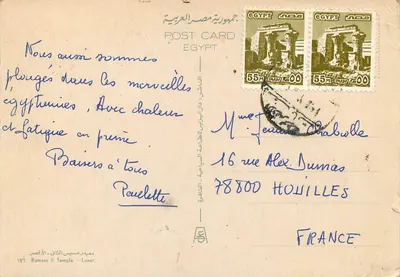 جمهورية مصر العربية
POST CARD
EGYPT
EGYPT
EGYPT
55
55
Nous aussi sommes
plongés dans les merveilles
égyptiennes, Avec chaleur
et fatigue en prime.
Baisers à tous
Paulette
Chabrolle
16 rue Alex. Dumas
78800 HOUILLES
FRANCE
Ramses II Temple - Luxor